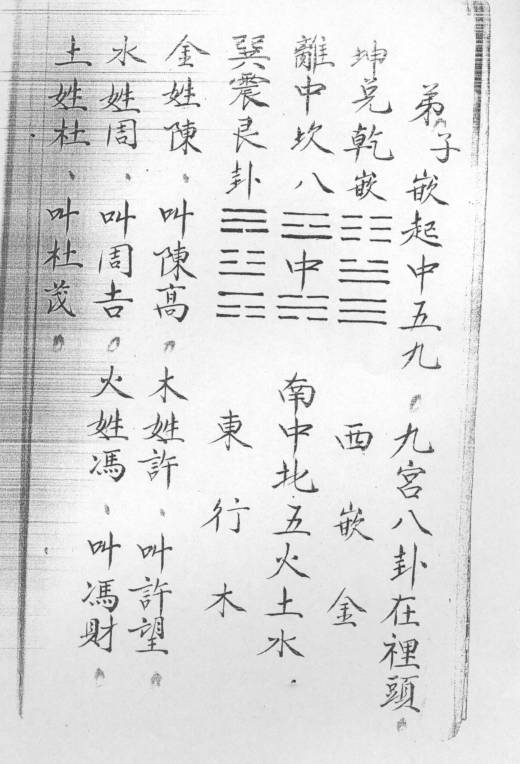 弟子嵌起中五九。九宮八卦在裡頭。
坤兌乾嵌☷☱☰西嵌金
離中坎八☲中☵南中北五火土水.
巽震艮卦☴☳☶東行木
金姓陳、叫陳高。木姓許、叫許望。
水姓周、叫周吉。火姓馮、叫馮財。
土姓杜、叫杜茂。